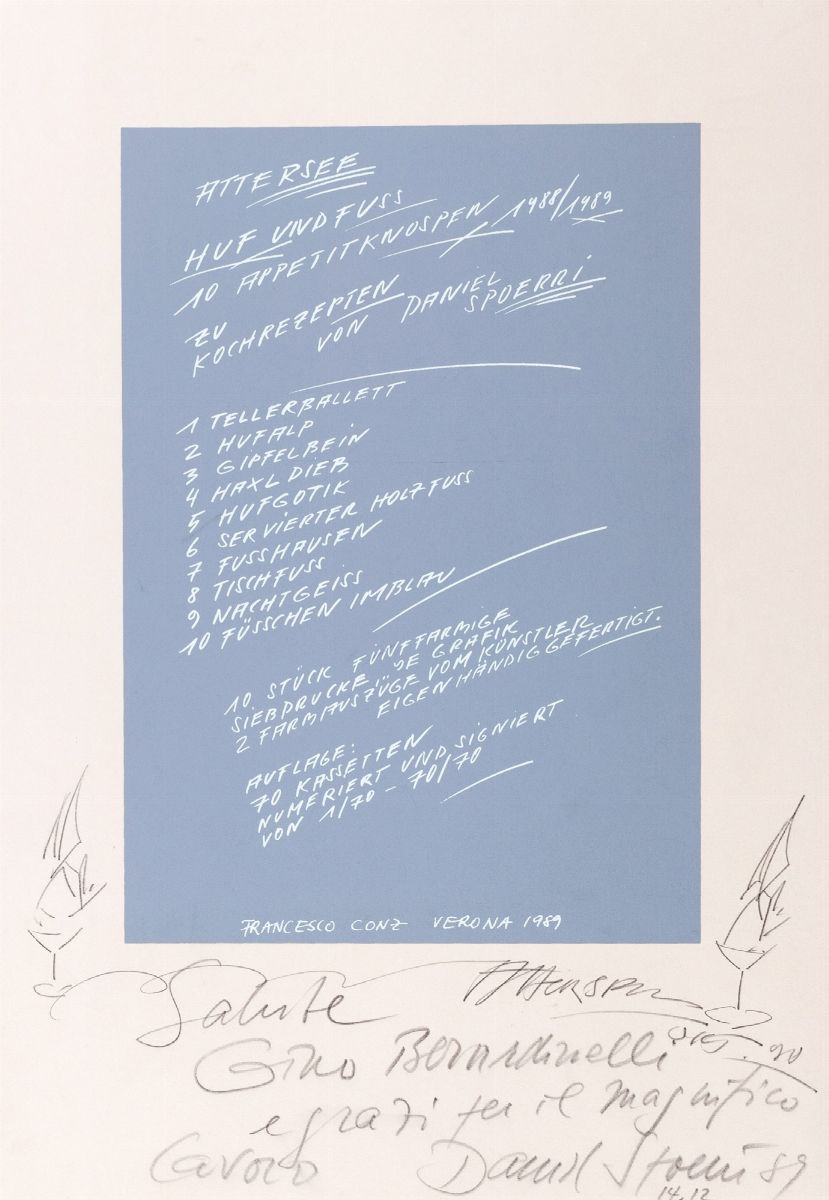 ATTERSEE
HUF UND FUSS
10 APPETITKNOSPEN 1988/1989
ZU
KOCHREZEPTEN
VON DANIEL
SPOERRI
1 TELLERBALLETT
2 HUFALP
3 GIPFELBEIN
4 HAXL DIEB
5 HUFGOTIK
6 SERVIERTER HOLZFUSS
7 FUSSHAUSEN
8 TISCHFUSS
9 NACHTGEISS
10 FÜSSCHEN IMBLAU
10 STÜCK FÜNFFARMIGE
SIEBDRUCKE, JE GRAFIK
2 FARMAUSZÜGE VOM KÜNSTLER
EIGENHÄNDIG GEFERTIGT.
AUFLAGE:
70 KASSETTEN
NUMERIERT UND SIGNIERT
VON 1/70 - 70/70
FRANCESCO CONZ VERONA 1989
Salute Attersee
Gino Berardinelli 90
e grazi per il magnifico
lavoro Daniel Spoerri 89
14.12